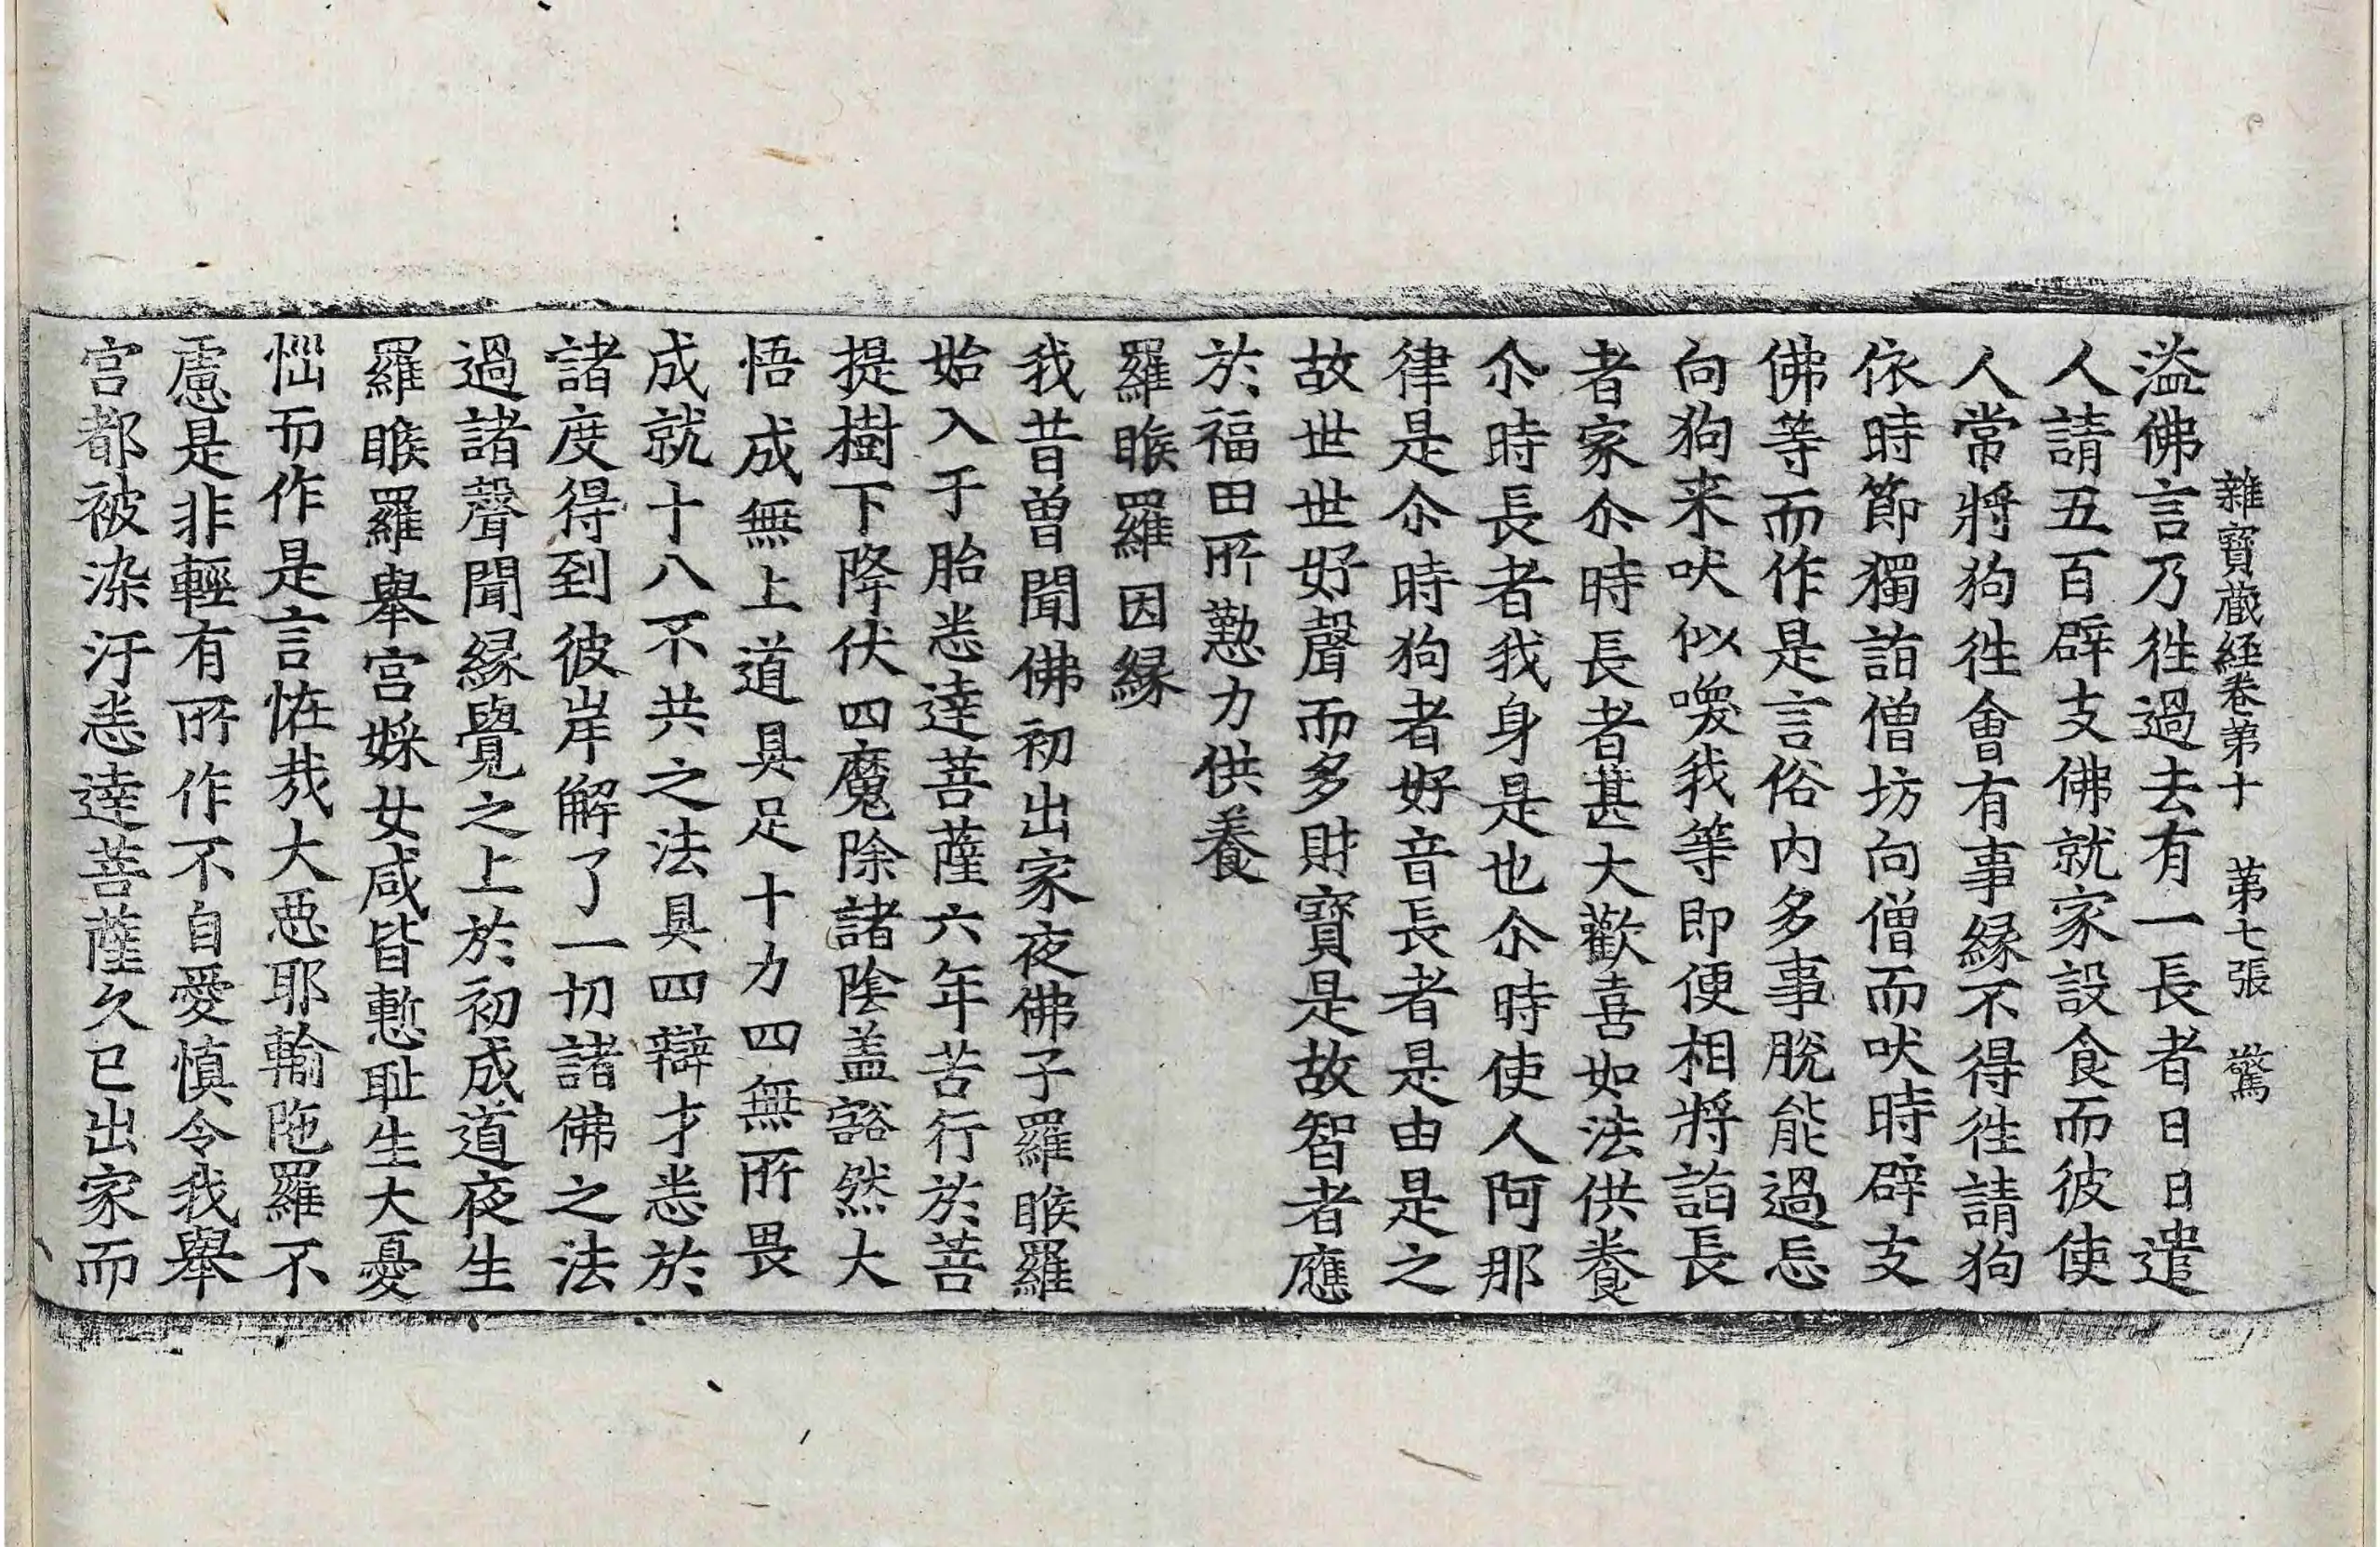 雜寶藏經卷第十　第七張　驚
溢佛言乃徃過去有一長者日日遣
人請五百辟支佛就家設食而彼使
人常將狗徃會有事緣不得徃請狗
依時節獨詣僧坊向僧而吠時辟支
佛等而作是言俗内多事脫能過忘
向狗来吠似喚我等即便相將詣長
者家尒時長者甚大歡喜如法供養
尒時長者我身是也尒時使人阿那
律是尒時狗者好音長者是由是之
故世世好聲而多財寶是故智者應
於福田所懃力供養
羅睺羅因緣
我昔曾聞佛初出家夜佛子羅睺羅
始入于胎悉達菩薩六年苦行於菩
提樹下降伏四魔除諸陰盖豁然大
悟成無上道具足十力四無所畏
成就十八不共之法具四辯才悉於
諸度得到彼岸解了一切諸佛之法
過諸聲聞緣覺之上於初成道夜生
羅睺羅舉宮婇女咸皆慙耻生大憂
惱而作是言恠㦲大惡耶輸陁羅不
慮是非輕有所作不自愛慎令我舉
宮都被染汙悉達菩薩久已出家而